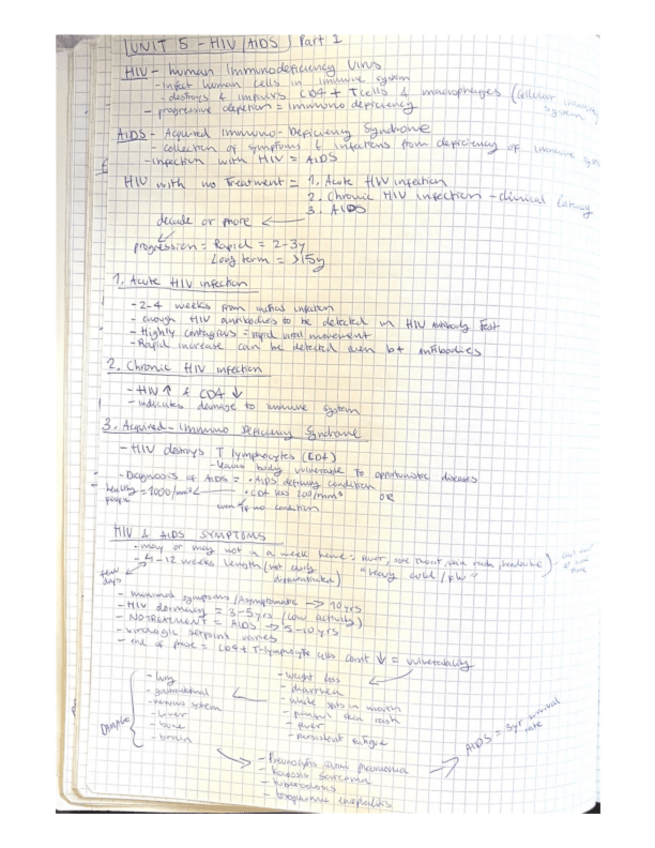 UNIT 5 - HIV/AIDS Part 1
HIV - human Immunodeficiency Virus
- Infect human cells in immune system
- destroys & impairs CD4+ T cells & macrophages (Cellular immune system
- progressive depletion = immuno deficiency
AIDS - Aquired Immuno-Deficiency Syndrome
- collection of symptoms & infections from deficiency of immune sys
- infection with HIV = AIDS
HIV with no Treatment = 1. Acute HIV infection
2. Chronic HIV infection - clinical latency
3. AIDS
decade or more ←
progression = Rapid = 2-3y
Long term = >15y
1. Acute HIV infection
- 2-4 weeks from initial infection
- enough HIV antibodies to be detected in HIV Antibody Test
- Highly contagious = rapid viral movement
- Rapid increase can be detected even b4 antibodies
2. Chronic HIV infection
- HIV ↑ & CD4 ↓
- indicates damage to immune system
3. Acquired-Immuno Deficiency Syndrome
- HIV destroys T lymphocytes (CD4)
- leaves body vulnerable to opportunistic diseases
- Diagnosis of AIDS = • AIDS defining condition
healthy people = 1000/mm³ ← • CD4 less 200/mm³ OR
even if no condition
HIV & AIDS SYMPTOMS
- may or may not in a week have: fever, sore throat, skin rash, headache)
- 4-12 weeks length (not easily "Heavy cold / Flu"
few days
- minimal symptoms / Asymptomatic → 10yrs
- HIV dormancy = 3-5yrs (low activity)
- NO TREATMENT = AIDS → 5-10yrs
- virologic setpoint varies
- end of phase = CD4+ T-lymphocyte cells count ↓ = vulnerability
- lung
- gastrointestinal
- nervous system
- liver
- bone
- brain
- weight loss
- diarrhea
- white spots in mouth
- painful skin rash
- fever
- persistent fatigue
- Pneumocystis carinii pneumonia
- Kaposis sarcoma
- tuberculosis
- toxoplasmic encephalitis
AIDS = 5yr survival rate